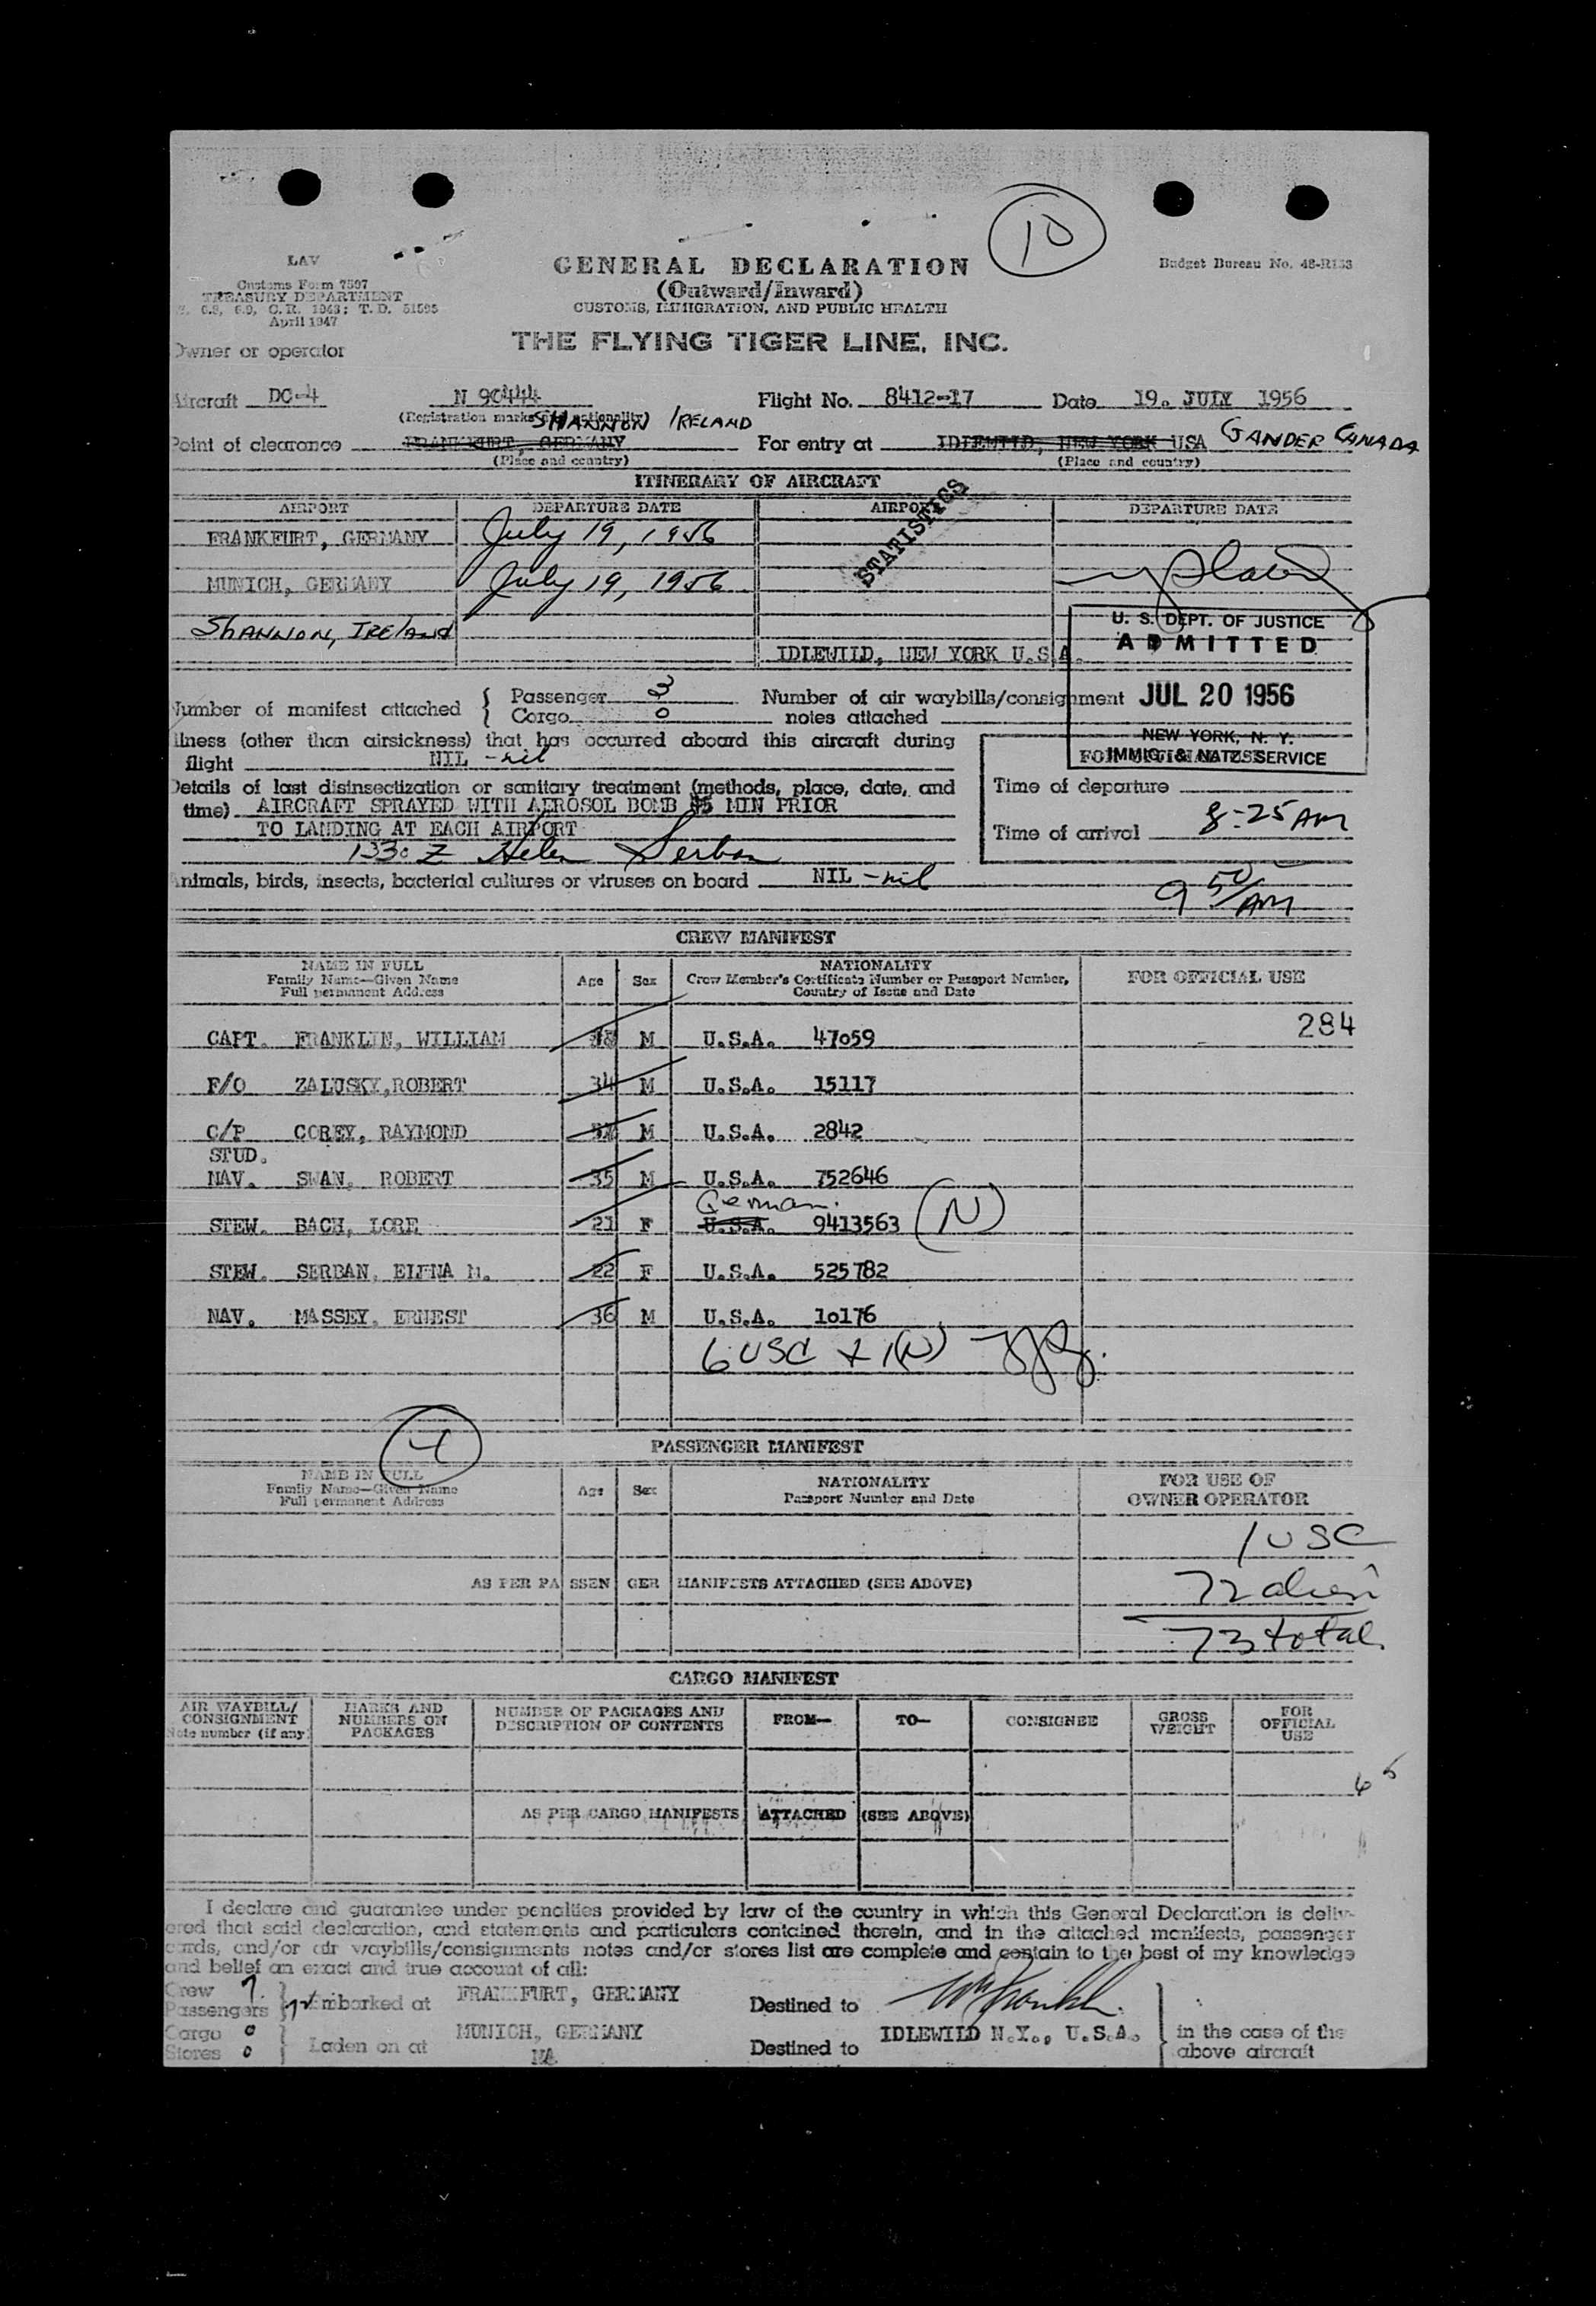 10
LAV
Customs Form 7507
TREASURY DEPARTMENT
6.8, 6.9, C.R. 1943; T.D. 51595
April 1947
GENERAL DECLARATION
(Outward/Inward)
CUSTOMS, IMMIGRATION, AND PUBLIC HEALTH
Budget Bureau No. 48-R133
Owner or operator
THE FLYING TIGER LINE, INC.
Aircraft DC-4 N 90444 Flight No. 8412-17 Date 19. JULY 1956
(Registration marks and nationality)
SHANNON IRELAND
Point of clearance FRANKFURT, GERMANY For entry at IDLEWILD, NEW YORK USA GANDER CANADA
(Place and country) (Place and country)
ITINERARY OF AIRCRAFT
AIRPORT DEPARTURE DATE AIRPORT DEPARTURE DATE
STATISTICS
FRANKFURT, GERMANY July 19, 1956
MUNICH, GERMANY July 19, 1956
SHANNON, IRELAND
IDLEWILD, NEW YORK U.S.A.
U. S. DEPT. OF JUSTICE
ADMITTED
JUL 20 1956
NEW YORK, N. Y.
IMMIG. & NATZ. SERVICE
Number of manifest attached { Passenger 3 Number of air waybills/consignment
Cargo 0 notes attached
Illness (other than airsickness) that has occurred aboard this aircraft during
flight NIL - nil
Details of last disinsectization or sanitary treatment (methods, place, date, and
time) AIRCRAFT SPRAYED WITH AEROSOL BOMB 45 MIN PRIOR
TO LANDING AT EACH AIRPORT
1330 Z Helen Serban
Time of departure
Time of arrival 8:25 AM
Animals, birds, insects, bacterial cultures or viruses on board NIL - nil
9 50/AM
CREW MANIFEST
NAME IN FULL
Family Name—Given Name
Full permanent Address
Age Sex
NATIONALITY
Crew Member's Certificate Number or Passport Number,
Country of Issue and Date
FOR OFFICIAL USE
284
CAPT. FRANKLIN, WILLIAM M U.S.A. 47059
F/O ZALUSKY, ROBERT 34 M U.S.A. 15117
C/P COREY, RAYMOND M U.S.A. 2842
STUD.
NAV. SWAN, ROBERT 35 M U.S.A. 752646
German
STEW. BACH, LORE 21 F U.S.A. 9413563 (N)
STEW. SERBAN, ELENA M. 22 F U.S.A. 525782
NAV. MASSEY, ERNEST 36 M U.S.A. 10176
6 USC + 1(N)
PASSENGER MANIFEST
NAME IN FULL
Family Name—Given Name
Full permanent Address
Age Sex
NATIONALITY
Passport Number and Date
FOR USE OF
OWNER OPERATOR
1 USC
AS PER PASSENGER MANIFESTS ATTACHED (SEE ABOVE) 72 alien
73 total
CARGO MANIFEST
AIR WAYBILL/
CONSIGNMENT
Note number (if any)
MARKS AND
NUMBERS ON
PACKAGES
NUMBER OF PACKAGES AND
DESCRIPTION OF CONTENTS
FROM— TO— CONSIGNEE
GROSS
WEIGHT
FOR
OFFICIAL
USE
AS PER CARGO MANIFESTS ATTACHED (SEE ABOVE)
I declare and guarantee under penalties provided by law of the country in which this General Declaration is deliv-
ered that said declaration, and statements and particulars contained therein, and in the attached manifests, passenger
cards, and/or air waybills/consignments notes and/or stores list are complete and contain to the best of my knowledge
and belief an exact and true account of all:
Crew 7
Passengers } Embarked at FRANKFURT, GERMANY Destined to Wm Franklin
Cargo 0 MUNICH, GERMANY IDLEWILD N.Y., U.S.A. in the case of the
Stores 0 } Laden on at NA Destined to above aircraft